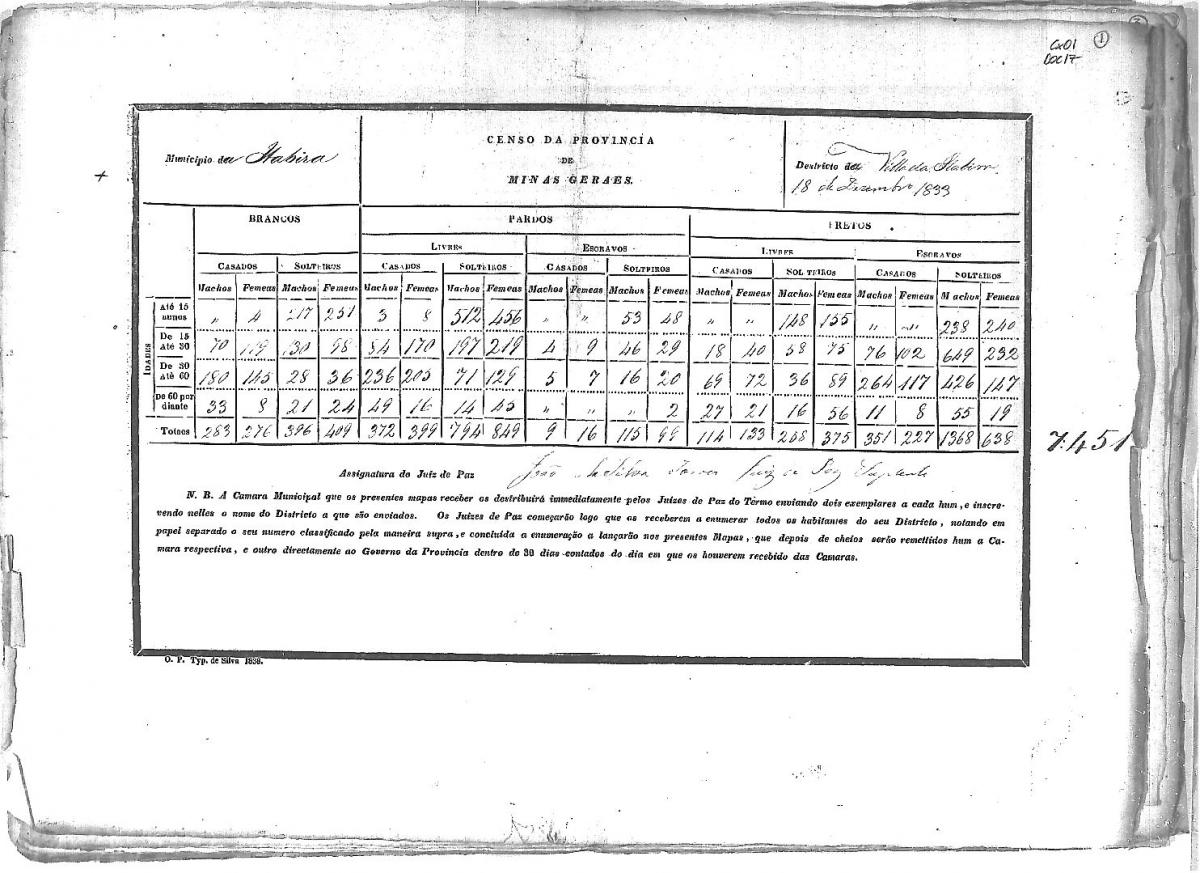 Cx01 1
DOC17
Municipio da Itabira
CENSO DA PROVINCIA
DE
MINAS GERAES.
Destricto da Villa da Itabira.
18 de Dezembro 1839
BRANCOS PARDOS PRETOS
LIVRES ESCRAVOS LIVRES ESCRAVOS
CASADOS SOLTEIROS CASADOS SOLTEIROS CASADOS SOLTEIROS CASADOS SOLTEIROS CASADOS SOLTEIROS
Machos Femeas Machos Femeas Machos Femeas Machos Femeas Machos Femeas Machos Femeas Machos Femeas Machos Femeas Machos Femeas Machos Femeas
IDADES
Até 15 annos „ 4 217 251 3 8 512 456 „ „ 53 48 „ „ 148 155 „ „ 238 240
De 15 Até 30 70 119 130 98 84 170 197 219 4 9 46 29 18 40 58 75 76 102 649 232
De 30 Até 60 180 145 28 36 236 205 71 129 5 7 16 20 69 72 36 89 264 117 426 147
De 60 por diante 33 8 21 24 49 16 14 45 „ „ „ 2 27 21 16 56 11 8 55 19
Totaes 283 276 396 409 372 399 794 849 9 16 115 99 114 133 258 375 351 227 1368 638 7.451
Assignatura do Juiz de Paz João da Silva Juiz de Paz Suplente
N. B. A Camara Municipal que os presentes mapas receber os destribuirá immediatamente pelos Juizes de Paz do Termo enviando dois exemplares a cada hum, e inscre-
vendo nelles o nome do Districto a que são enviados. Os Juizes de Paz começarão logo que os receberem a enumerar todos os habitantes do seu Districto, notando em
papel separado o seu numero classificado pela maneira supra, e concluida a enumeração a lançarão nos presentes Mapas, que depois de cheios serão remettidos hum a Ca-
mara respectiva, e outro directamente ao Governo da Provincia dentro de 30 dias contados do dia em que os houverem recebido das Camaras.
O. P. Typ. de Silva 1838.